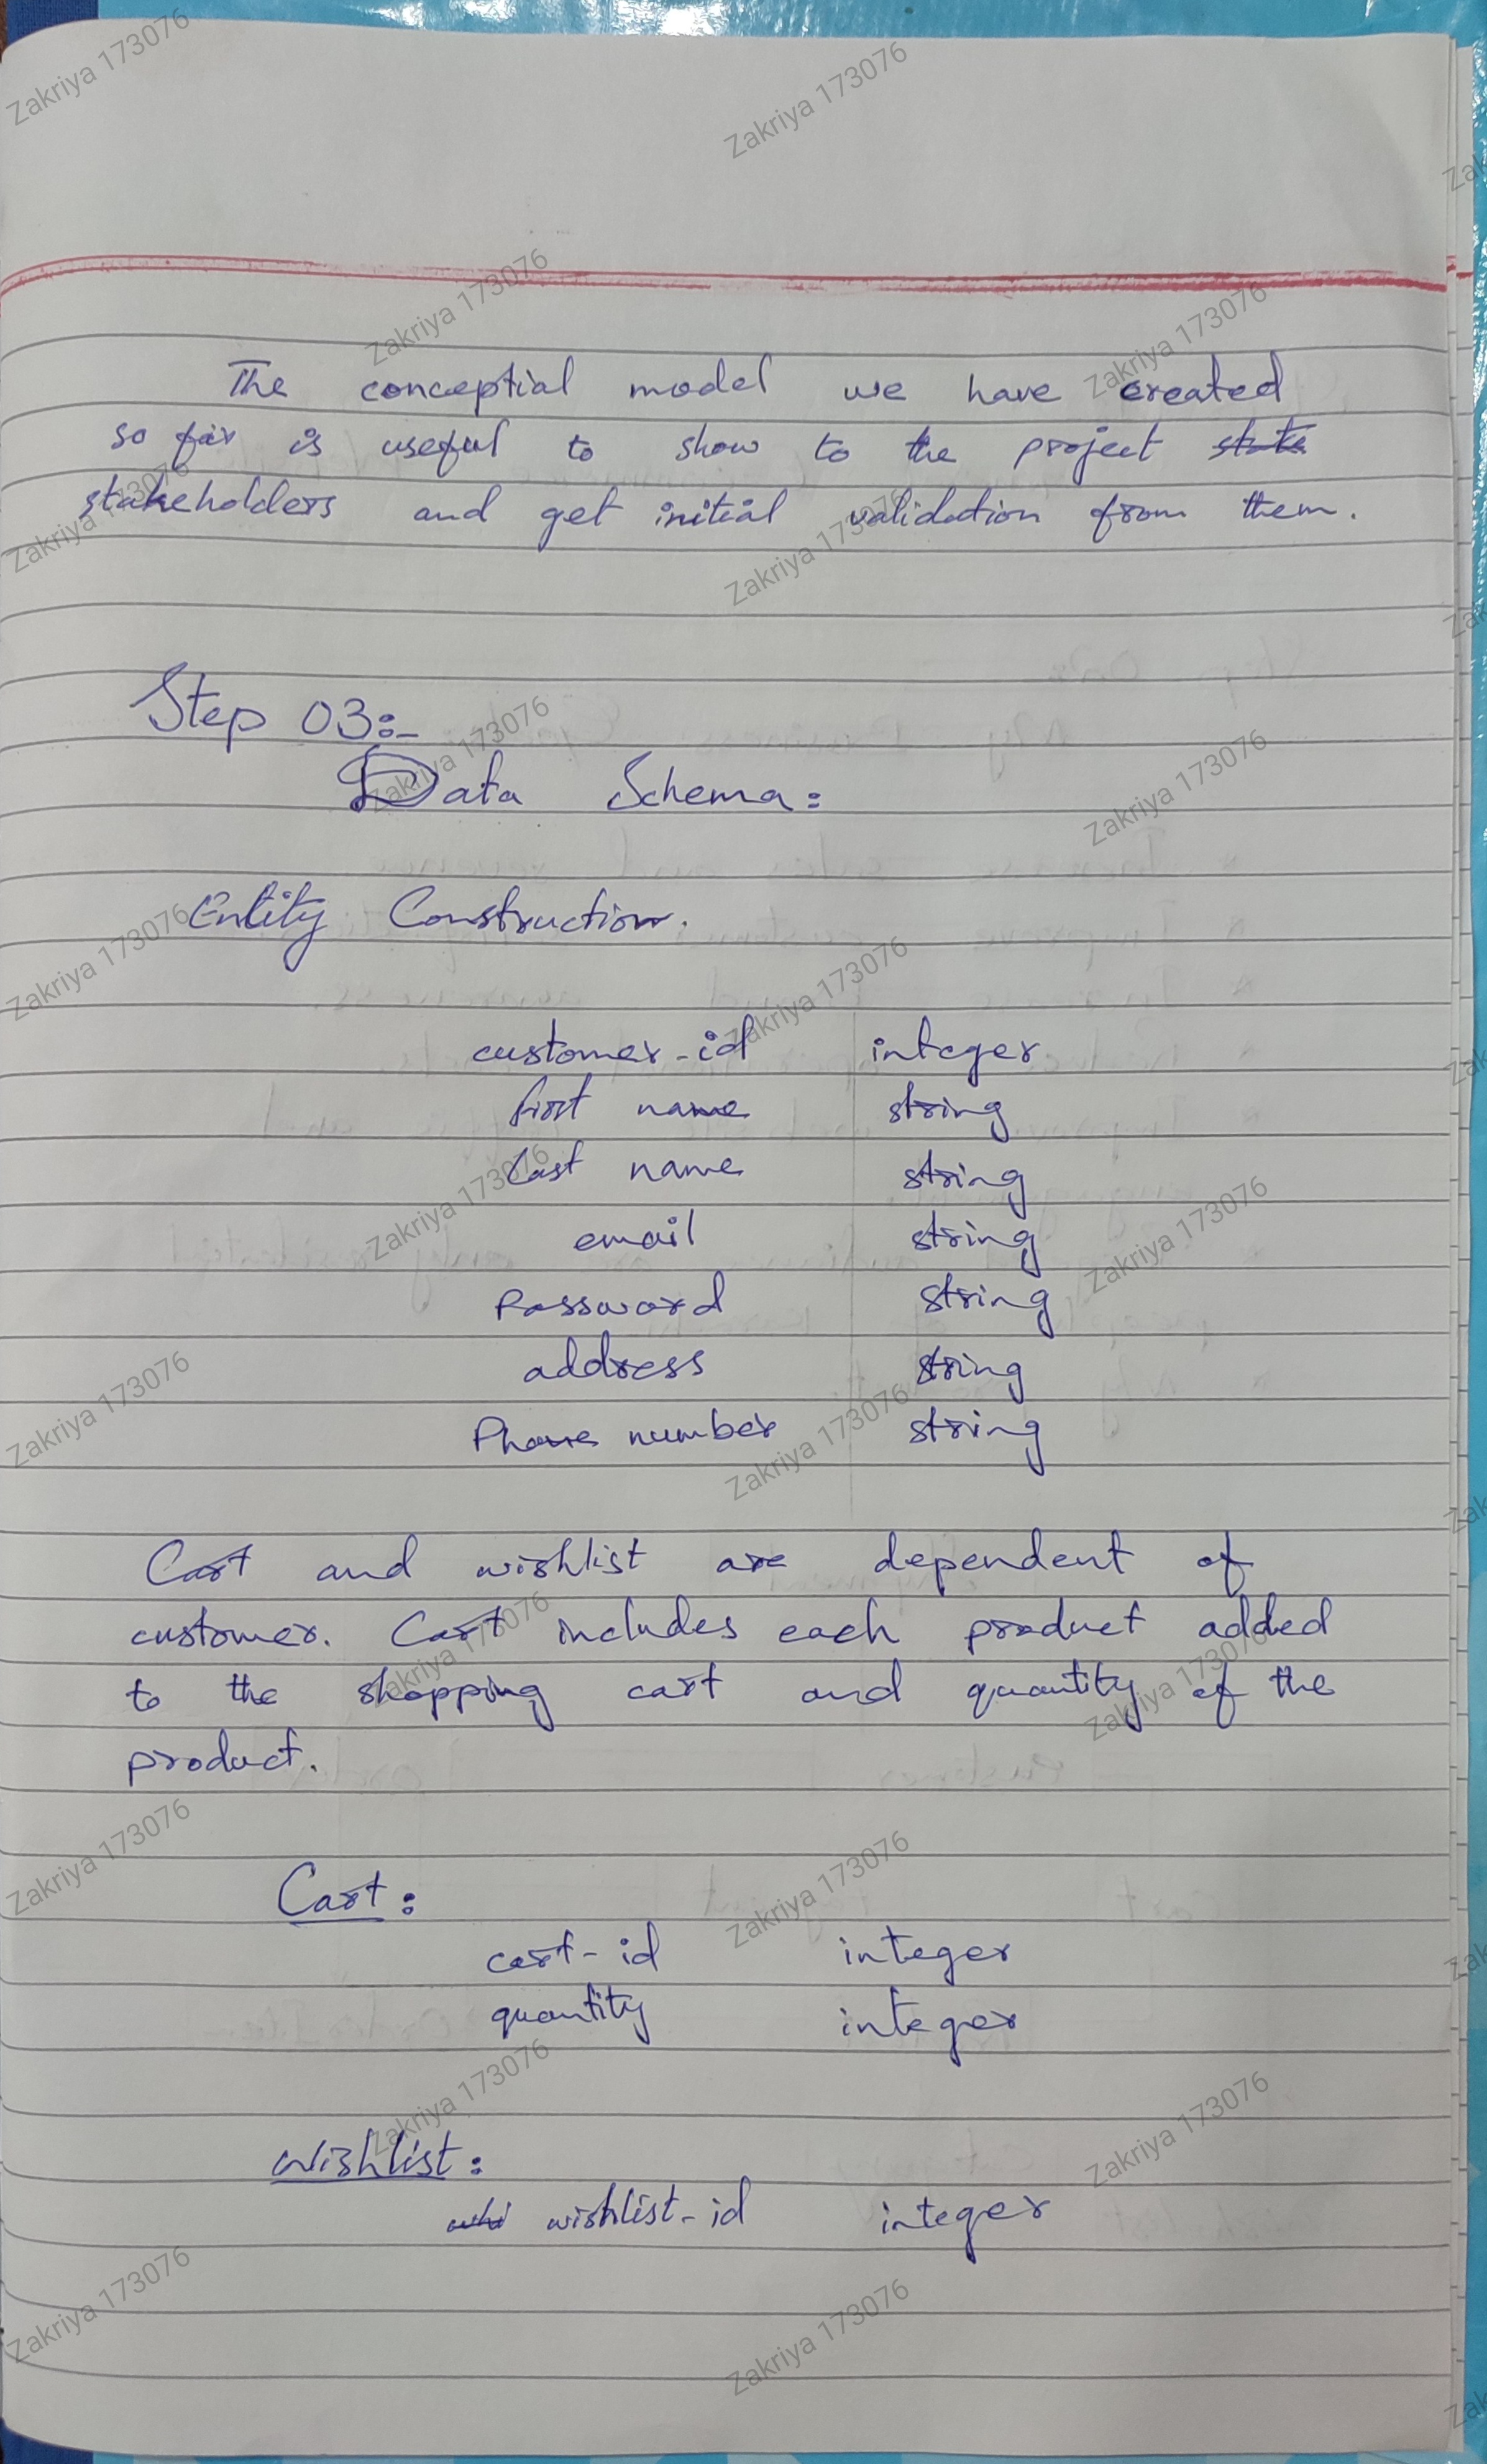 The conceptial model we have created
so far is useful to show to the project
stakeholders and get initial validation from them.
Step 03:-
Data Schema:
Entity Construction.
customer-id integer
first name string
last name string
email string
Password string
address string
Phone number string
Cart and wishlist are dependent of
customer. Cart includes each product added
to the shopping cart and quantity of the
product.
Cart:
cart-id integer
quantity integer
Wishlist:
wishlist-id integer
Zakriya 173076